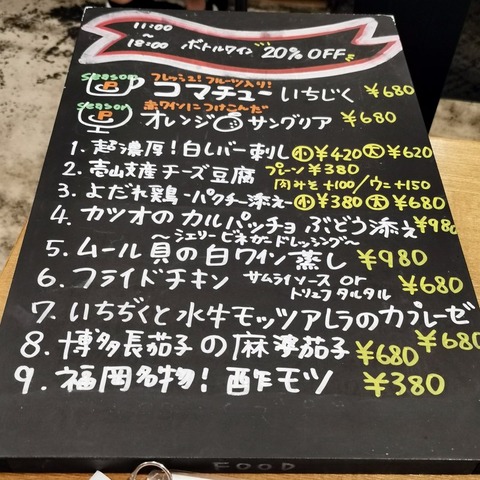 11:00
~
18:00 ボトルワイン 20% OFF
Season
P
フレッシュ!フルーツ入り!
コマチュー いちじく ¥680
Season
P
赤ワインにつけこんだ
オレンジ サングリア ¥680
1. 超濃厚!白レバー刺し 小¥420 大¥620
2. 壱岐産チーズ豆腐 プレーン¥380
肉みそ+100/ウニ+150
3. よだれ鶏-パクチー添え- 小¥380 大¥680
4. カツオのカルパッチョ ぶどう添え ¥980
~シェリービネガードレッシング~
5. ムール貝の白ワイン蒸し ¥980
6. フライドチキン サムライソース or
トリュフタルタル ¥680
7. いちぢくと水牛モッツアレラのカプレーゼ
¥680
8. 博多長茄子の麻婆茄子 ¥680
9. 福岡名物!酢モツ ¥380
FOOD